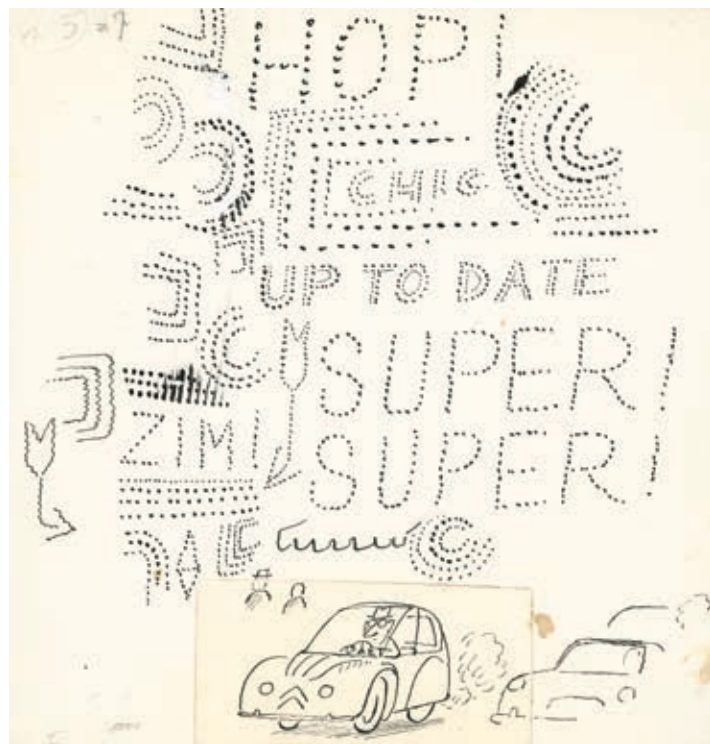 HOP!
CHIC
UP TO DATE
SUPER!
ZIM!
SUPER!